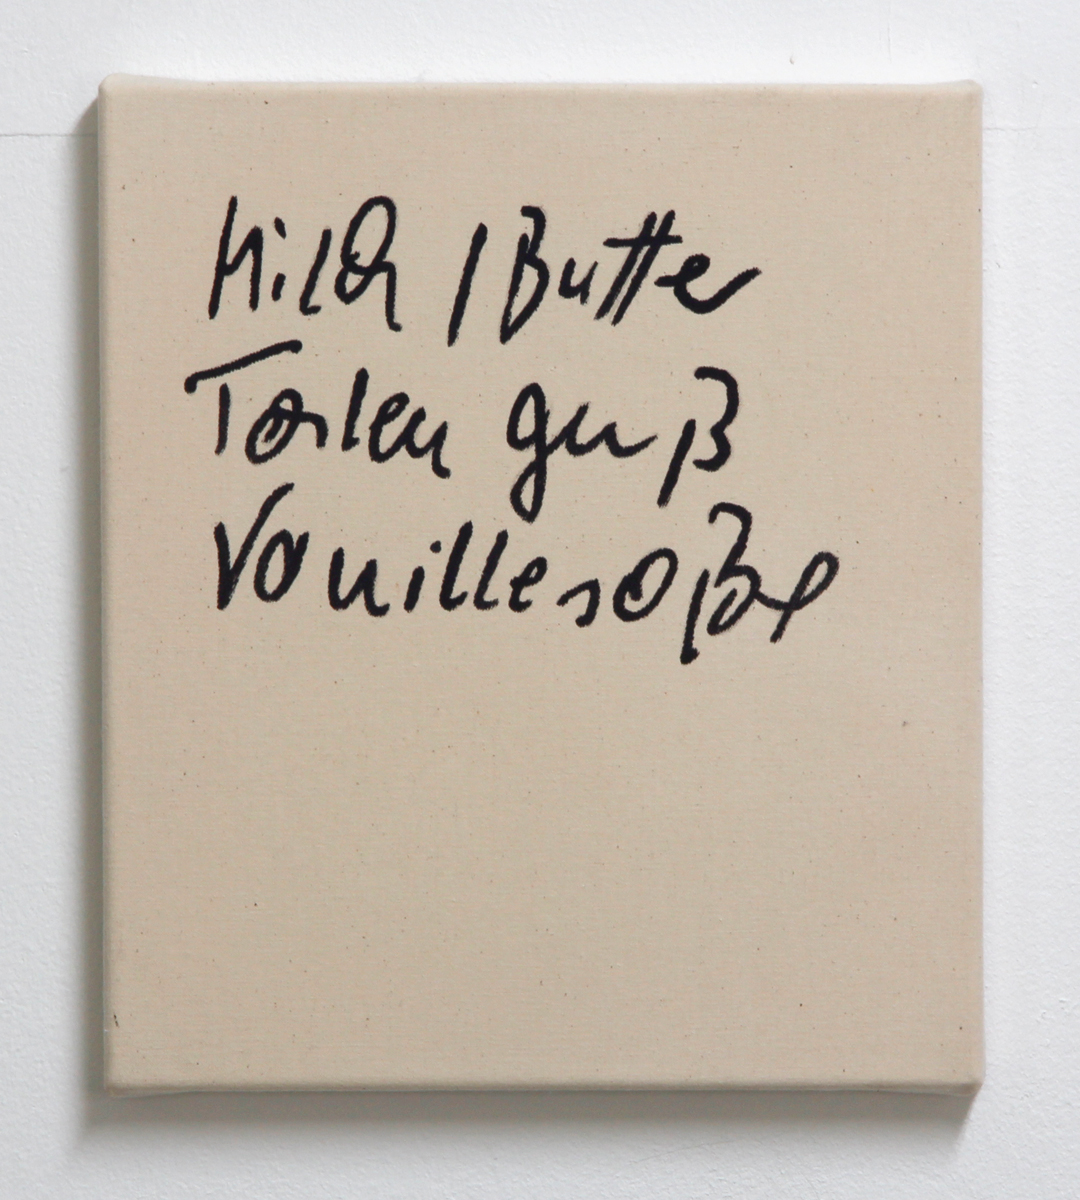 Milch / Butter
Torten guß
Vanillesoße